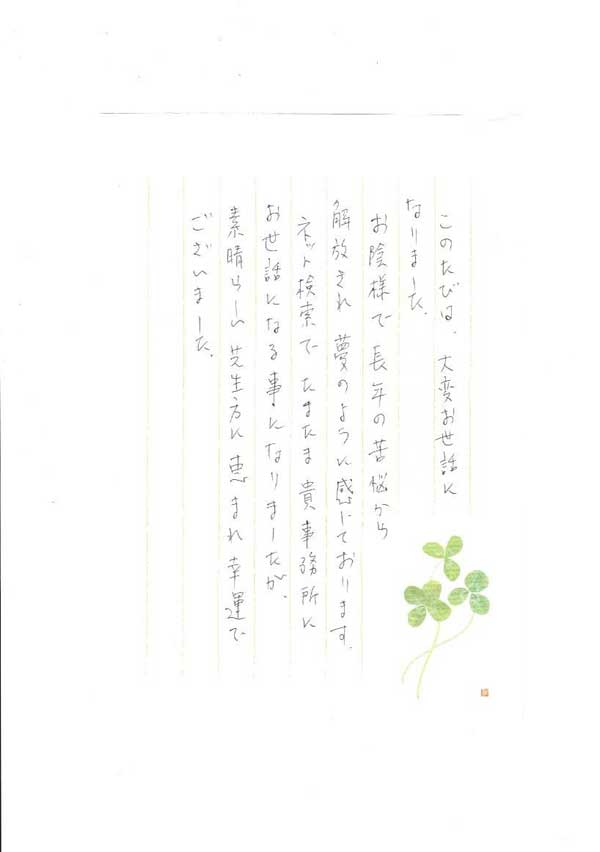 このたびは、大変お世話に
なりました。
お陰様で長年の苦悩から
解放され夢のように感じております。
ネット検索でたまたま貴事務所に
お世話になる事になりましたが、
素晴らしい先生方に恵まれ幸運で
ございました。